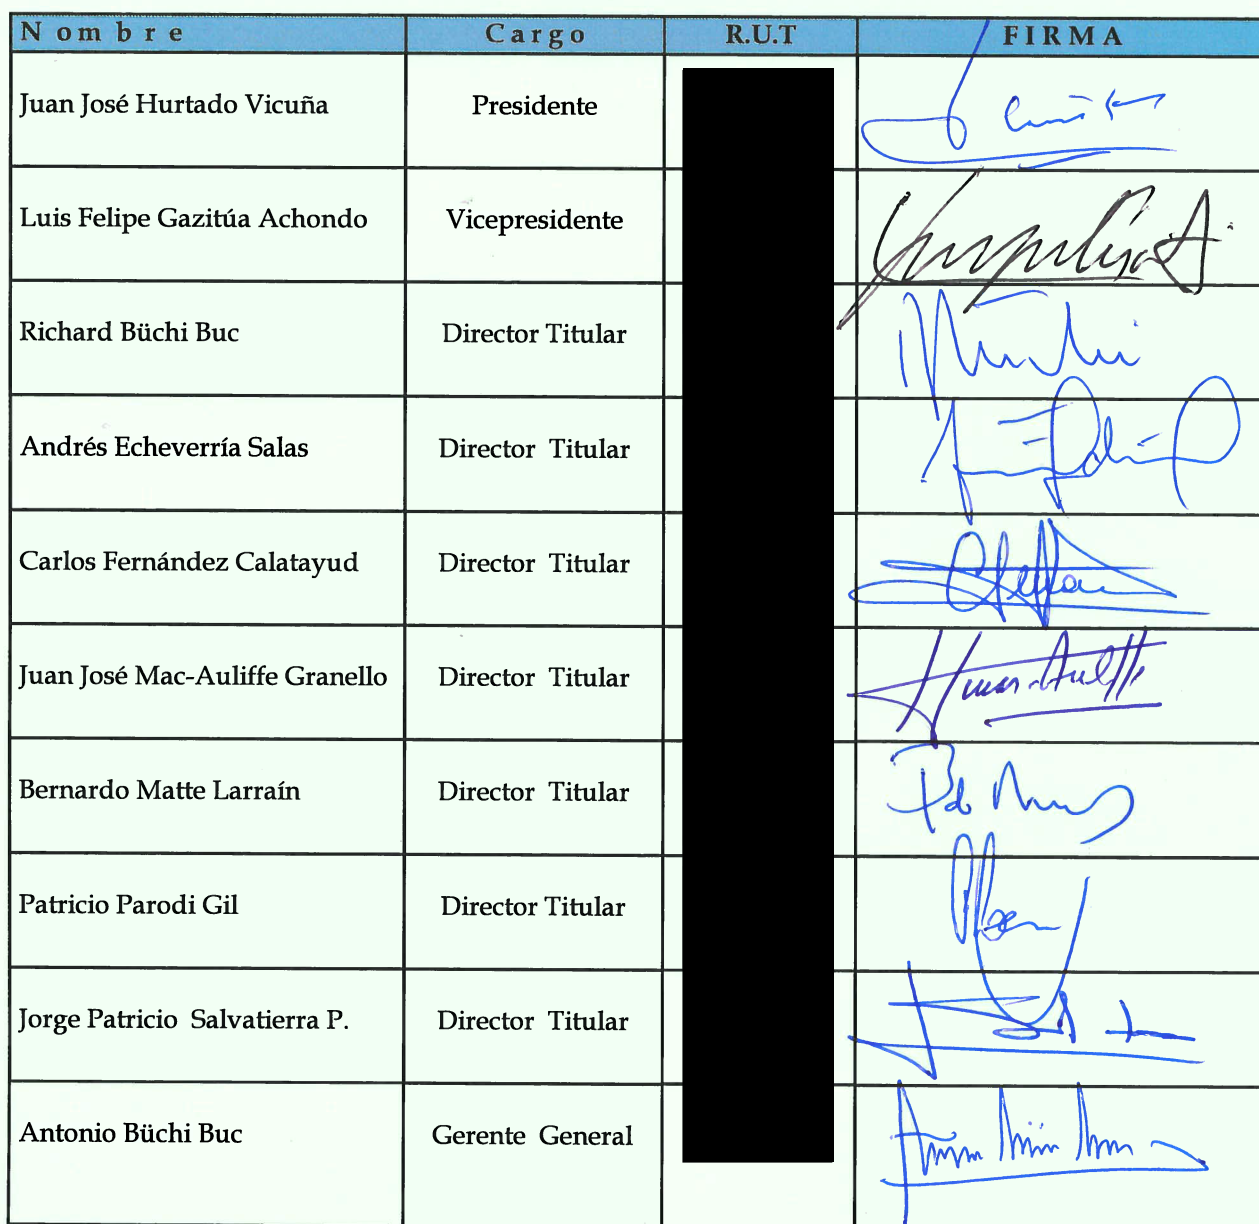 Nombre Cargo R.U.T FIRMA
Juan José Hurtado Vicuña Presidente
Luis Felipe Gazitúa Achondo Vicepresidente
Richard Büchi Buc Director Titular
Andrés Echeverría Salas Director Titular
Carlos Fernández Calatayud Director Titular
Juan José Mac-Auliffe Granello Director Titular
Bernardo Matte Larraín Director Titular
Patricio Parodi Gil Director Titular
Jorge Patricio Salvatierra P. Director Titular
Antonio Büchi Buc Gerente General